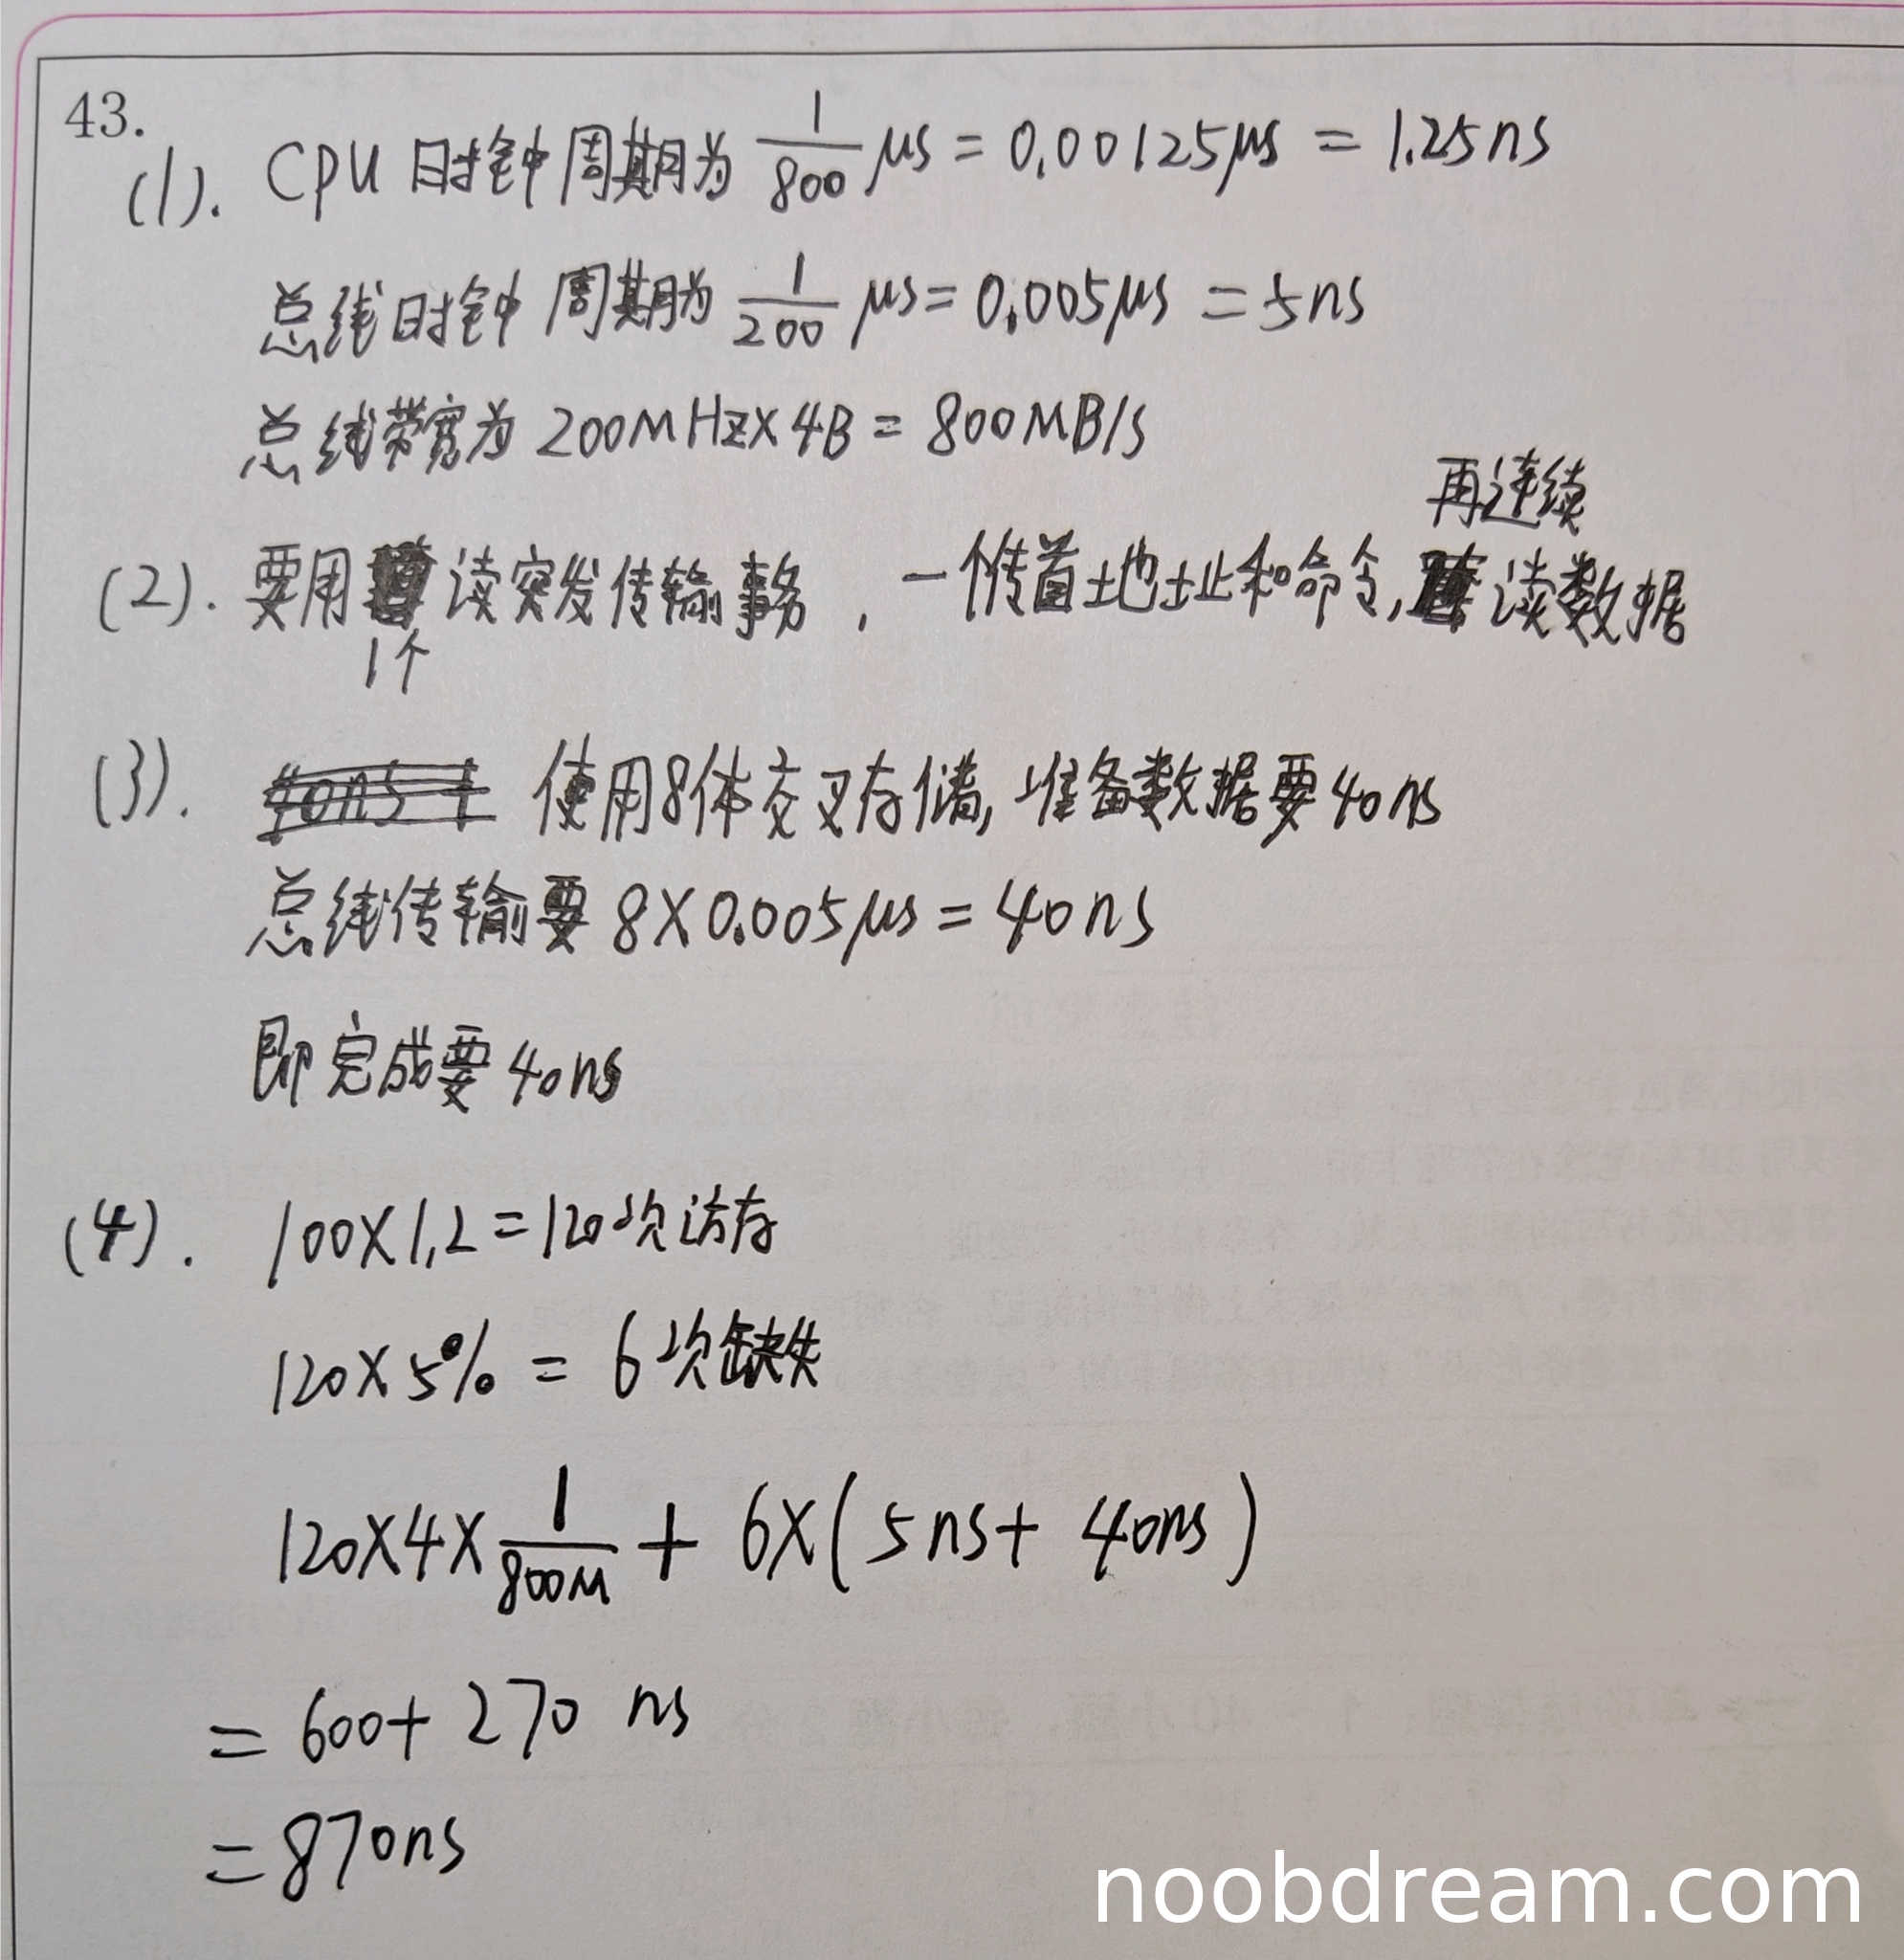 43.
(1). CPU 时钟周期为 1/800 μs = 0.00125μs = 1.25ns
总线时钟周期为 1/200 μs = 0.005μs = 5ns
总线带宽为 200MHz×4B = 800MB/s
(2). 要用1个读突发传输事务，一次传首地址和命令,再连续读数据
(3). 使用8体交叉存储, 准备数据要40ns
总线传输要 8×0.005μs = 40ns
即完成要40ns
(4). 100×1.2=120次访存
120×5% = 6次缺失
120×4×1/800M + 6×(5ns+ 40ns)
= 600+ 270 ns
= 870ns
noobdream.com